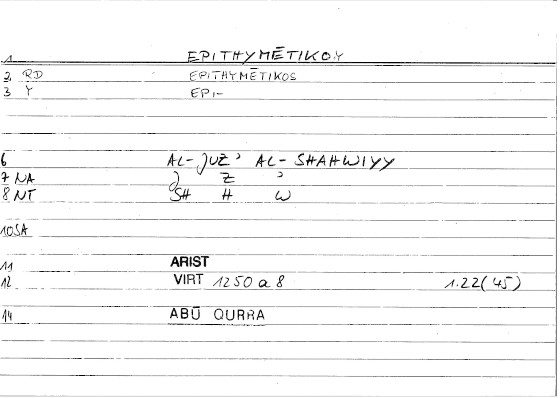 1 EPITHYMĒTIKOY
2 RD EPITHYMĒTIKOS
3 Y EPI-
6 AL-JUZ' AL-SHAHWIYY
7 NA J Z '
8 NT SH H W
10 SA
11 ARIST
12 VIRT 1250 a 8 1.22(45)
14 ABŪ QURRA